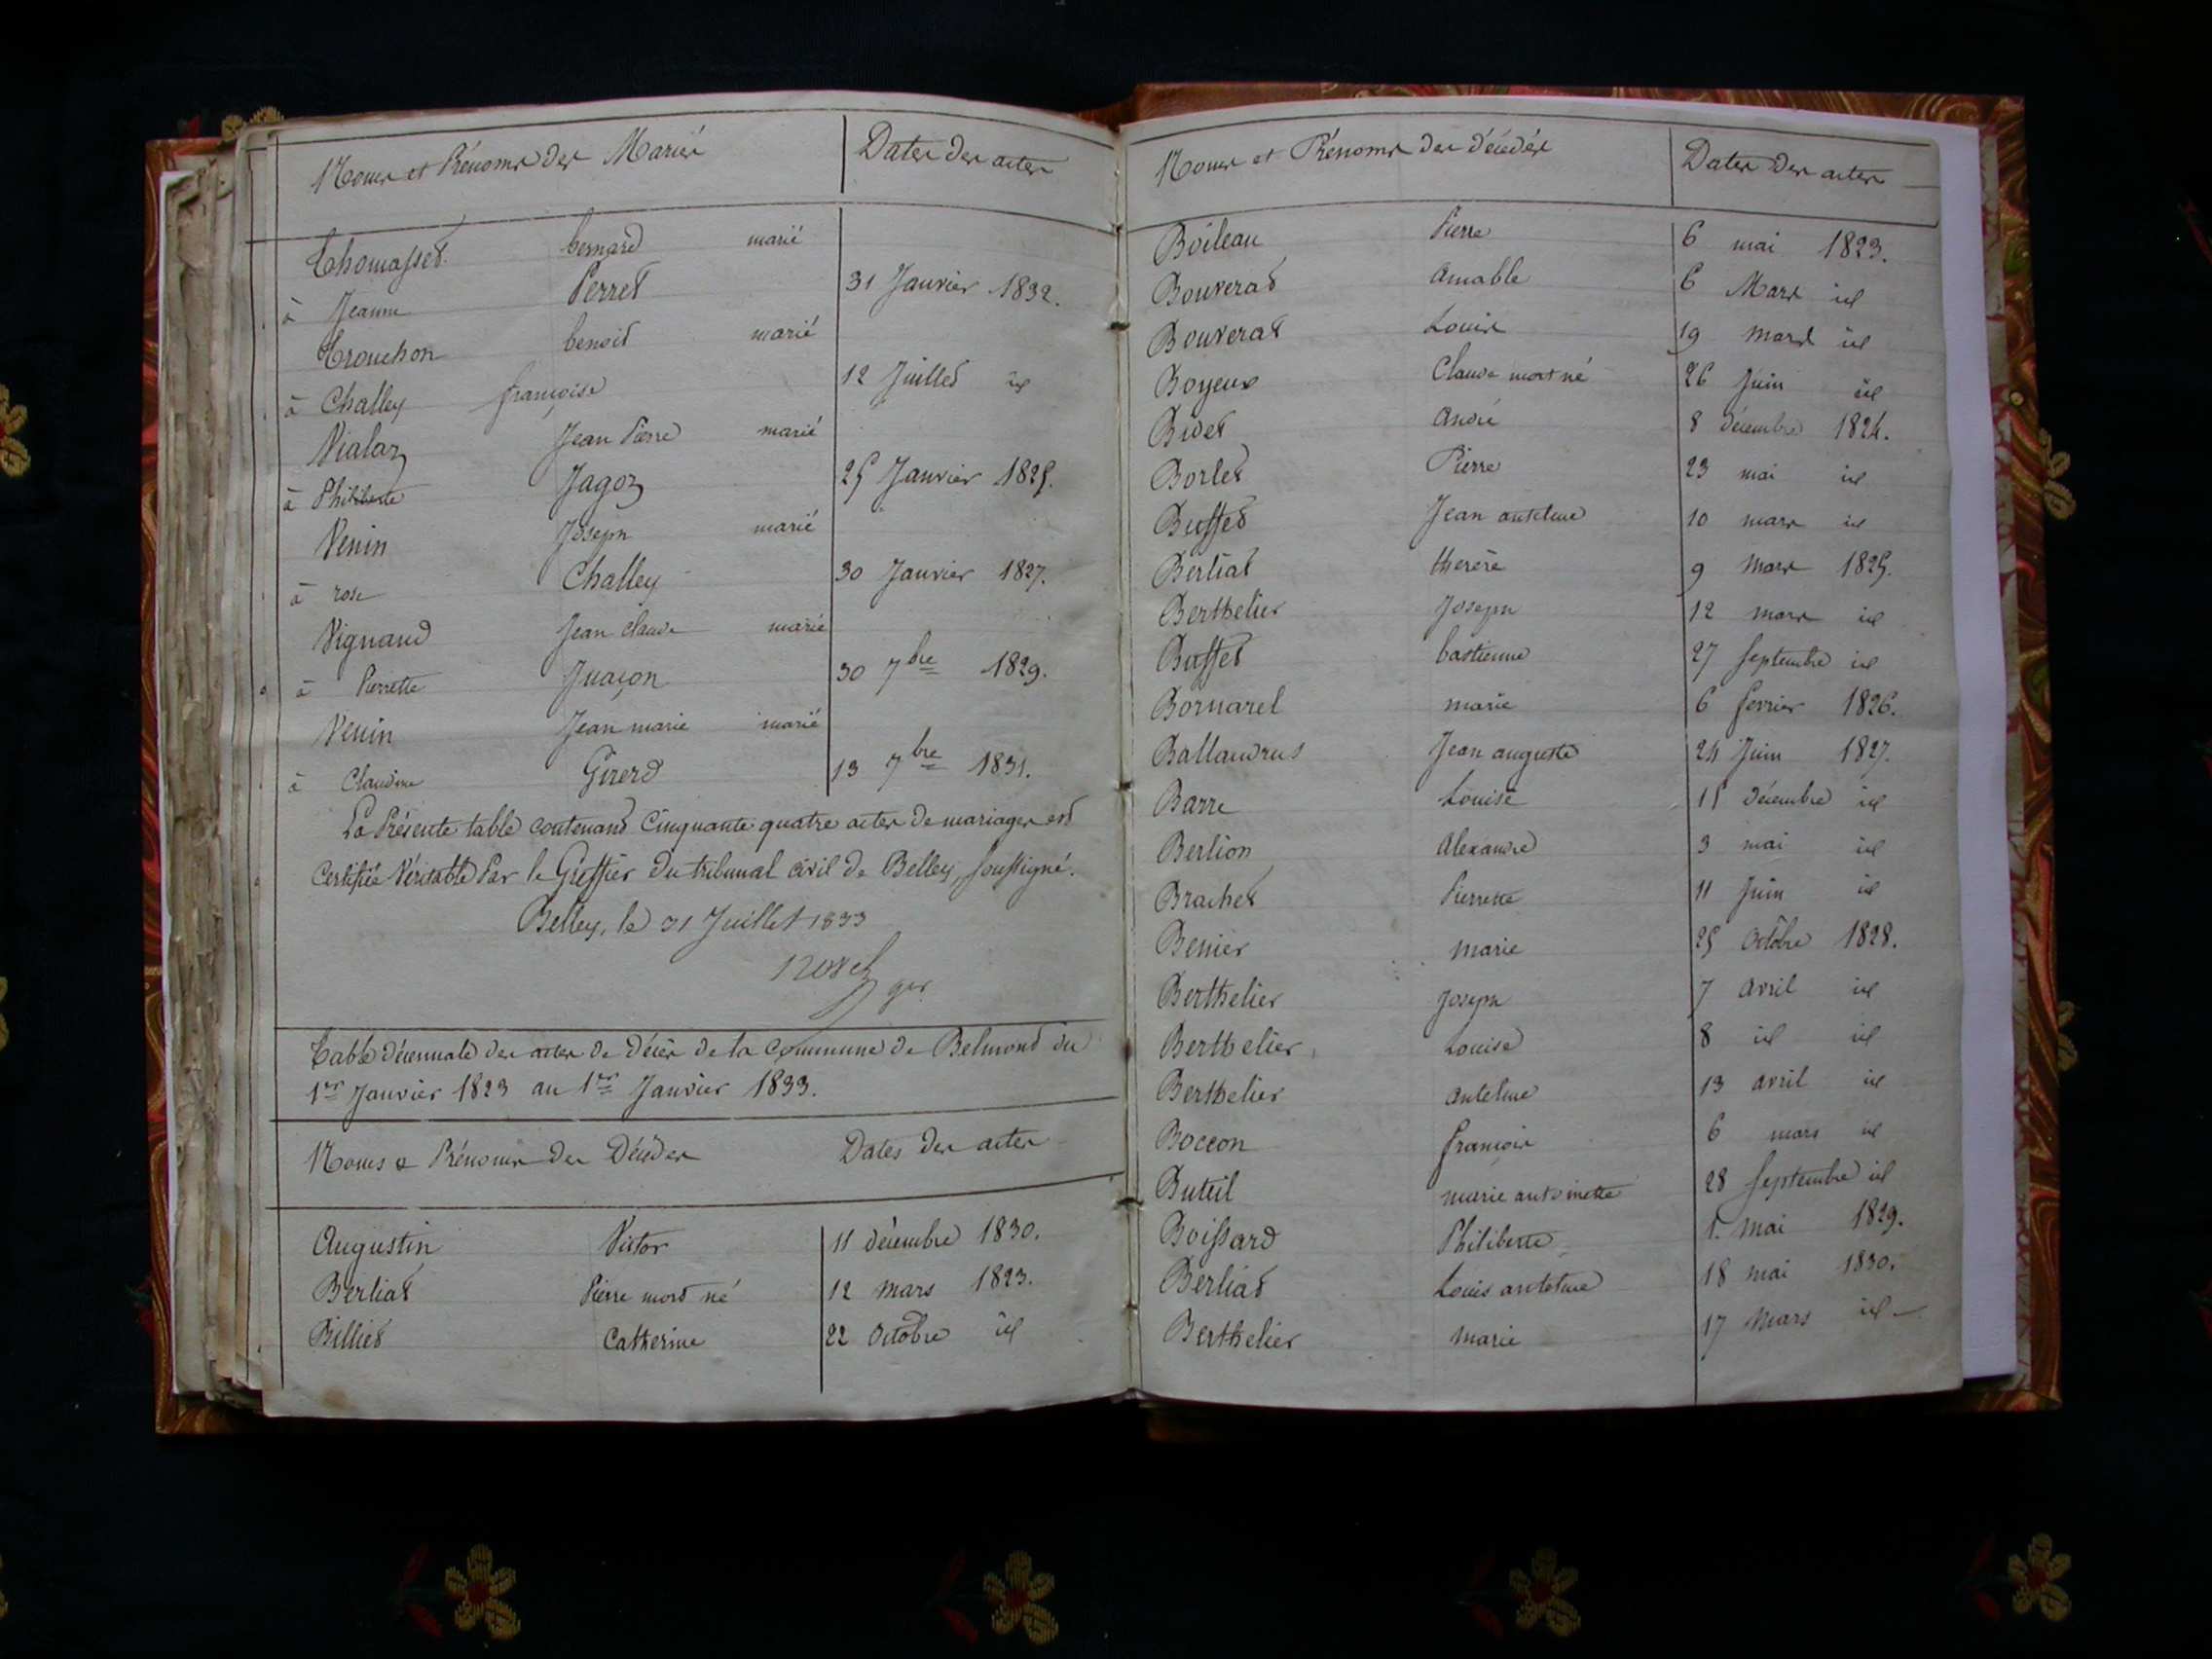 Noms et Prénoms des Mariés Dates des actes
Thomasset bernard marié
à Jeanne Perret 31 Janvier 1832.
Trouchon benoit marié
à Challey françoise 12 Juillet id
Vialaz Jean Pierre marié
à Philiberte Jagoz 25 Janvier 1825.
Venin Joseph marié
à rose Challey 30 Janvier 1827.
Vignaud Jean claude marié
à Pierrette Juaçon 30 7bre 1829.
Venin Jean marie marié
à Claudine Girerd 13 7bre 1831.
La Présente table contenant Cinquante quatre actes de mariages est
Certifiée Véritable Par le Greffier du tribunal civil de Belley, soussigné.
Belley, le 31 Juillet 1833
Table décennale des actes de Décès de la Commune de Belmont du
1er Janvier 1823 au 1er Janvier 1833.
Noms & Prénoms des Décédés Dates des actes
Augustin Victor 11 décembre 1830.
Berliat Pierre mort né 12 mars 1823.
Billiet Catherine 22 Octobre id
Noms et Prénoms des décédés Dates des actes
Boileau Pierre 6 mai 1823.
Bouverat Amable 6 Mars id
Bouverat Louis 19 mars id
Boyeux Claude mort né 26 Juin id
Bidet André 8 décembre 1824.
Borlet Pierre 23 mai id
Buffet Jean antelme 10 mars id
Berliat therèse 9 Mars 1825.
Berthelier Joseph 12 mars id
Buffet bastienne 27 septembre id
Bornarel marie 6 fevrier 1826.
Ballandrus Jean auguste 24 Juin 1827.
Barre Louise 15 décembre id
Berlion Alexandre 3 mai id
Brachet Pierrette 11 Juin id
Benier Marie 25 Octobre 1828.
Berthelier Joseph 7 avril id
Berthelier Louise 8 id id
Berthelier antelme 13 avril id
Boccon françois 6 mars id
Buteil marie antoinette 28 septembre id
Boissard Philiberte 1. Mai 1829.
Berliat Louis antelme 18 mai 1830.
Berthelier Marie 17 Mars id